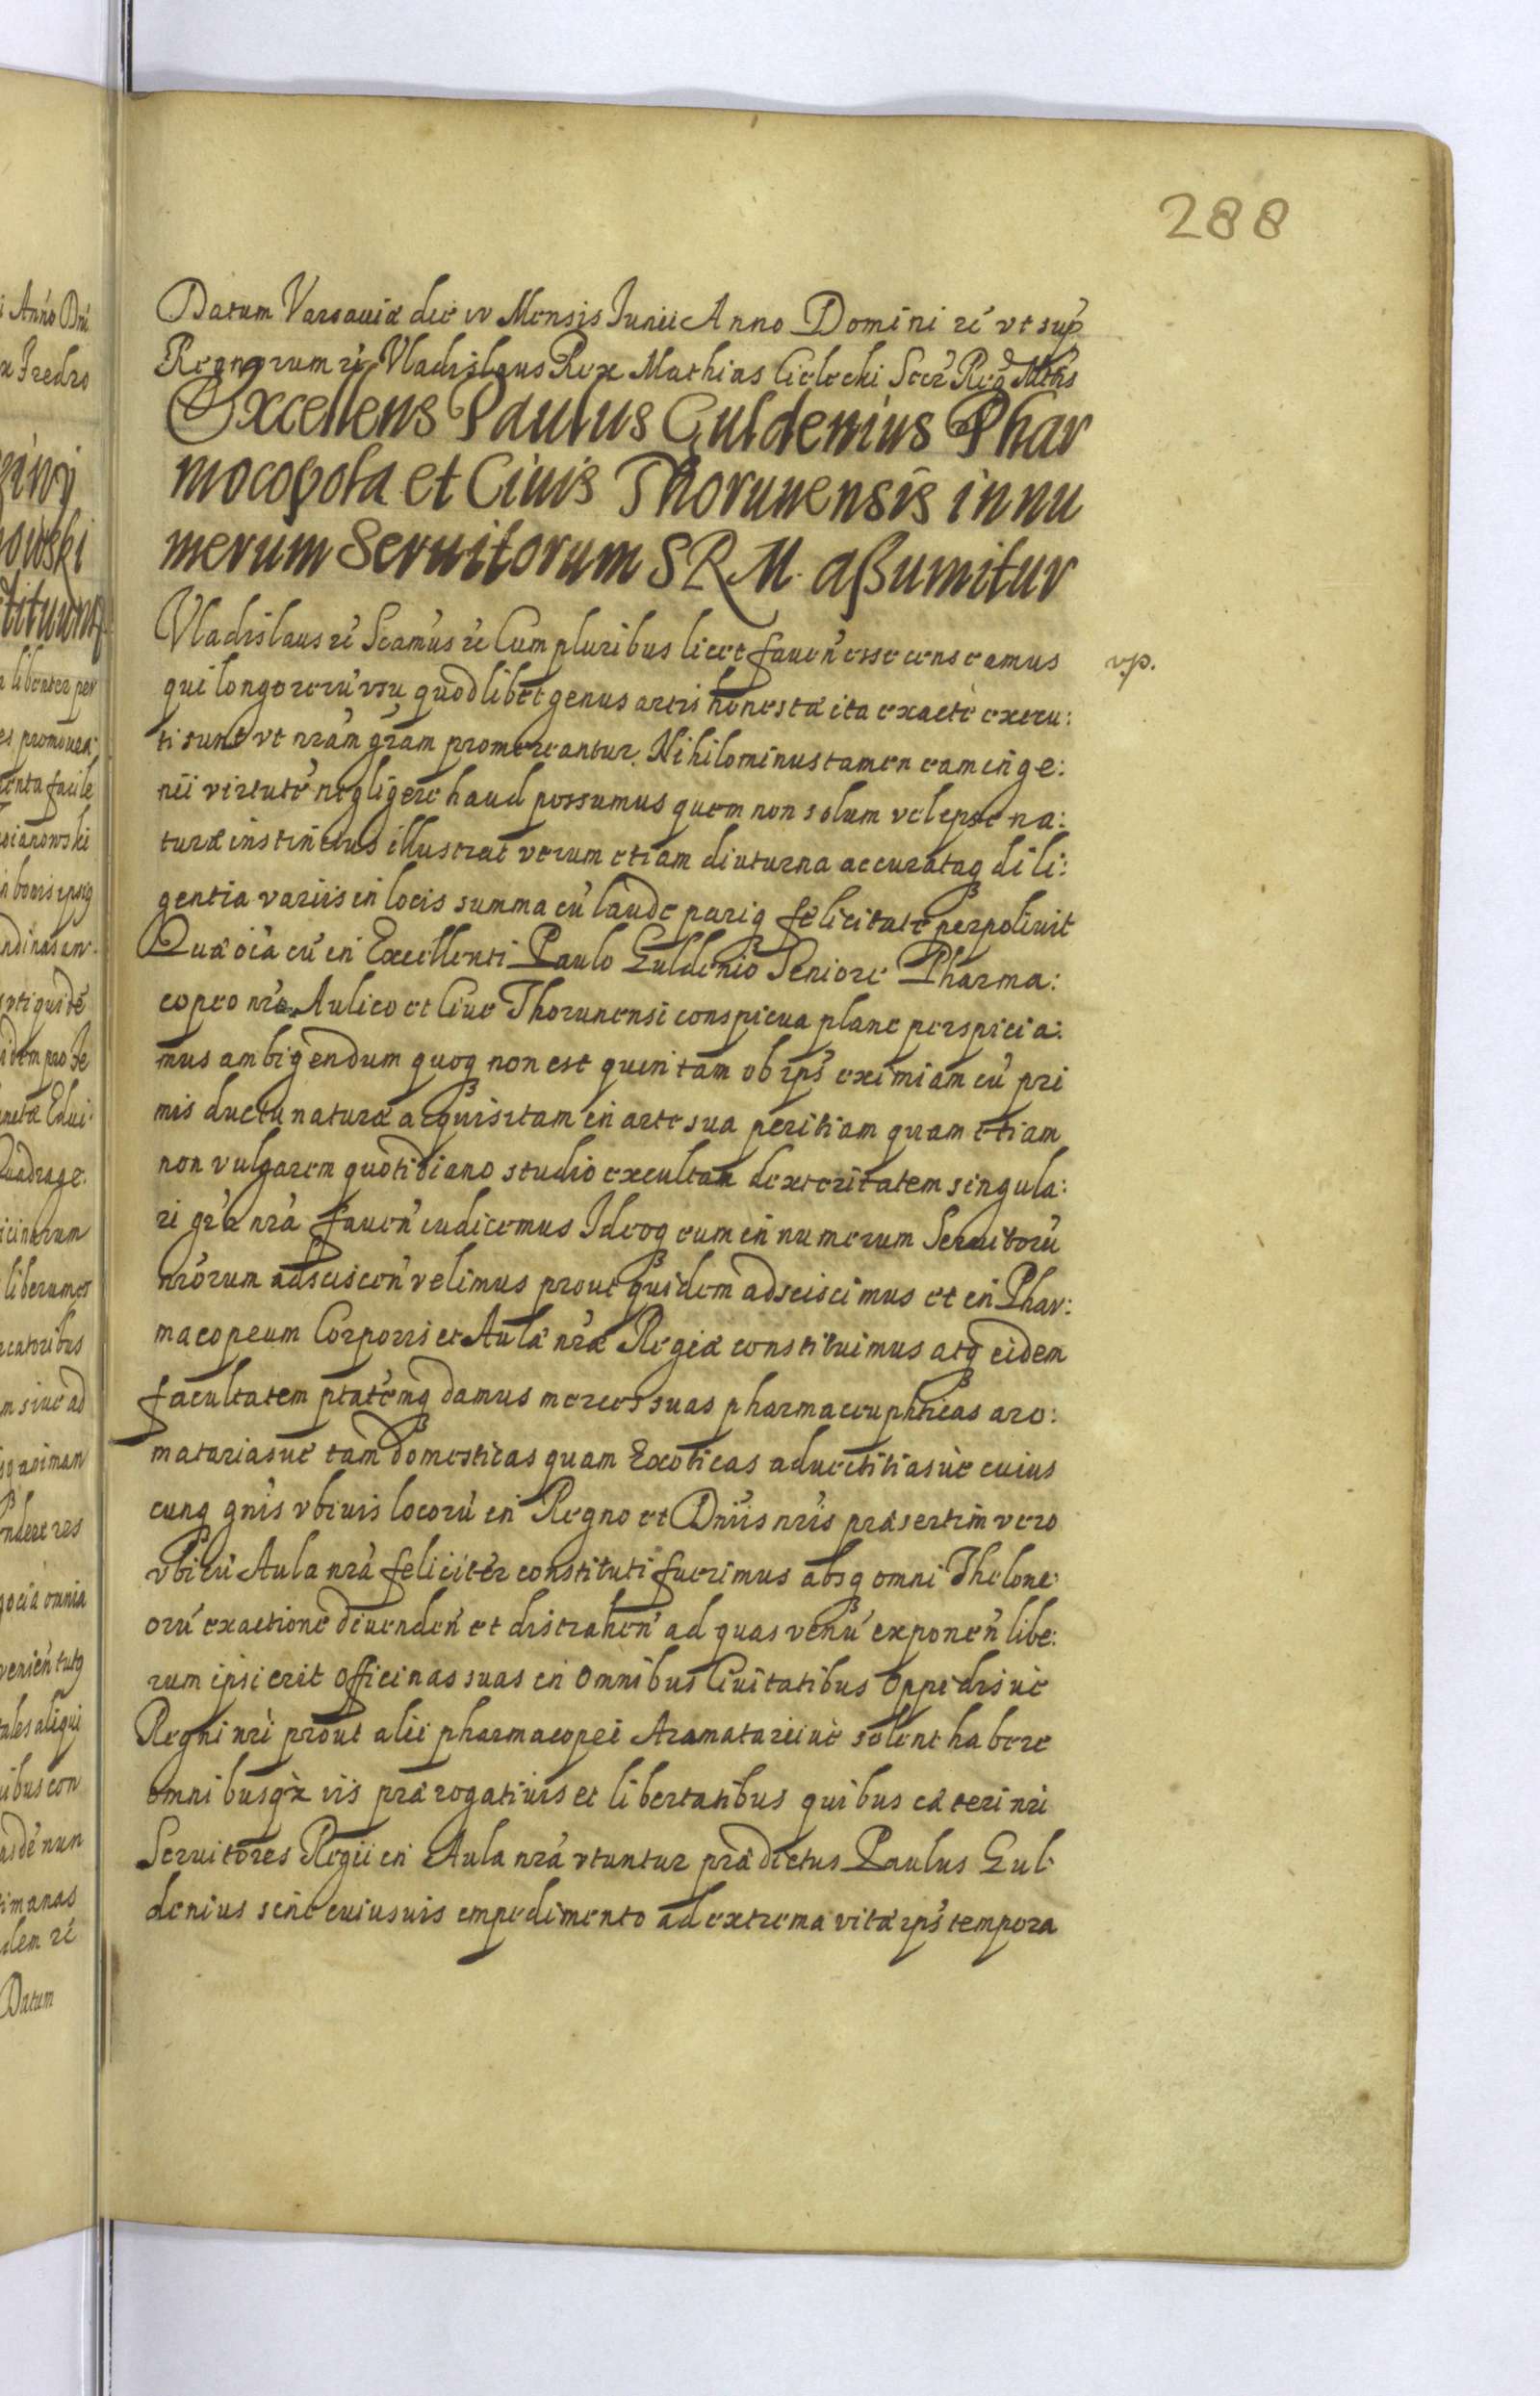 288
Datum Varsauiæ die IV Mensis Iunii Anno Domini rć vt sup̃
Regnorum rć Vladislaus Rex Mathias Cielecki Secr̃ Reg Mtis
Excellens Paulus Guldenius Phar
mocopola et Ciuis Thorunensis in nu
merum Seruitorum SRM. aßumitur
Vladislaus rć Scimus rć Cum pluribus licet fauen̄ esse censeamus
vp.
qui longo rerū vsu quodlibet genus artis honestæ ita exacte excru:
ti sunt vt nrām grām promereantur. Nihilominus tamen eam inge:
nii virtutē negligere haud possumus quem non solum vel ipse na:
turæ instinctus illustrat verum etiam diuturna accurataq dili:
gentia variis in locis summa cū laude pariq felicitate perpoliuit
Quæ oīa cū in Excellenti Paulo Guldenio Seniore Pharma:
copeo nro Aulico et Ciue Thorunensi conspicua plane perspicia:
mus ambigendum quoq non est quin tam ob ips̄ eximiam cū pri
mis ductu naturæ acquisitam in arte sua peritiam quam etiam
non vulgarem quotidiano studio excultam dexteritatem singula:
ri gr̄a nr̄a fauen̄ iudicemus Ideoq eum in numerum Seruitorū
nrōrum adsciscen̄ velimus prout quidem adsciscimus et in Phar:
macopeum Corporis et Aulæ nræ Regiæ constituimus atq eidem
facultatem ptatēmq damus merces suas pharmaceuphticas aro:
matariasue tam domesticas quam Exoticas aduectitiasue cuius
cunq gnīs vbiuis locorū in Regno et Dniis nrīs præsertim vero
vbi cū Aula nrā feliciter constituti fuerimus absq omni Thelone:
orū exactione diuenden̄ et distrahen̄ ad quas venū exponen̄ libe:
rum ipsi erit officinas suas in omnibus Ciuitatibus oppidisue
Regni nrī prout alii pharmacopei Aramatariiue solent habere
omnibusq̃ iis prærogatiuis et libertatibus quibus cæteri nri
Seruitores Regii in Aula nrā vtuntur prædictus Paulus Gul
denius sine cuiusuis impedimento ad extrema vitæ ips̄ tempora